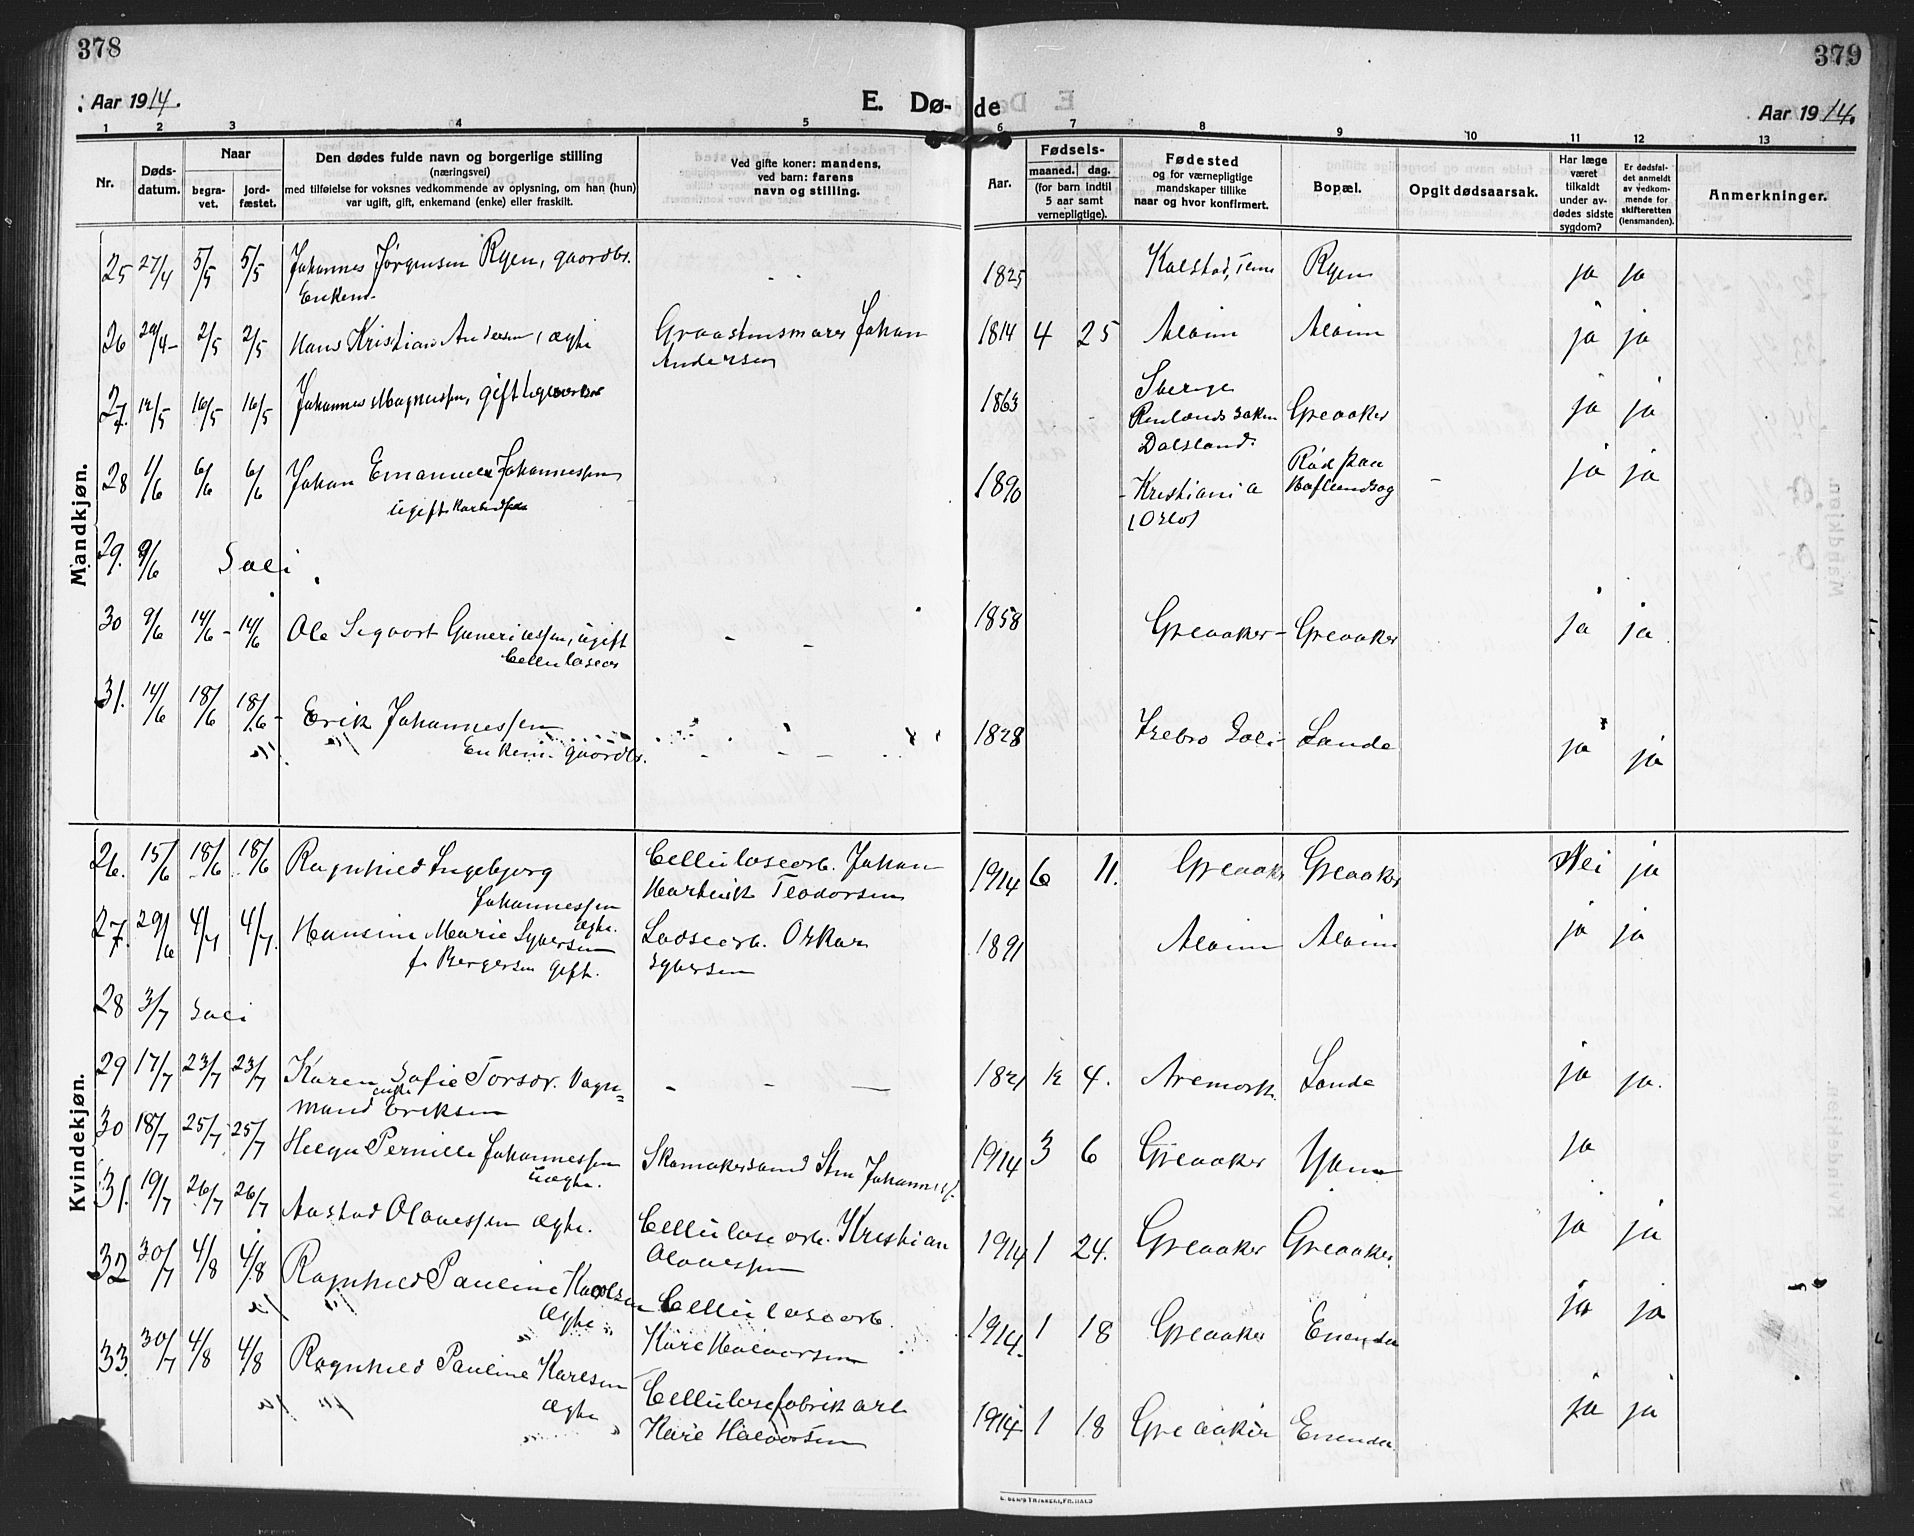 378
379
Aar 1914.
E. Dø-
de
Aar 1914.
1 2 3 4 5 6 7 8 9 10 11 12 13
Nr.
Døds-
datum.
Naar
begra-
vet.
jord-
fæstet.
Den dødes fulde navn og borgerlige stilling
(næringsvei)
med tilføielse for voksnes vedkommende av oplysning, om han (hun)
var ugift, gift, enkemand (enke) eller fraskilt.
Ved gifte koner: mandens,
ved barn: farens
navn og stilling.
Aar.
Fødsels-
maaned. dag.
(for barn indtil
5 aar samt
vernepligtige).
Fødested
og for værnepligtige
mandskaper tillike
naar og hvor konfirmert.
Bopæl.
Opgit dødsaarsak.
Har læge
været
tilkaldt
under av-
dødes sidste
sygdom?
Er dødsfal-
det anmeldt
av vedkom-
mende for
skifteretten
(lensmanden).
Anmerkninger.
Mandkjøn.
25 27/4 5/5 5/5 Johannes Jørgensen Ryen, gaardbr. 1825 Ryen ja ja
Enkem.
26 29/4 2/5 2/5 Hans Kristian Andersen, ægte Johan 1814 4 25 Alvim Alvim ja ja
Andersen
27. 12/5 16/5 16/5 Johannes Magnussen, gift 1863 Sverige Greaaker ja ja
Dalsland.
28 1/6 6/6 6/6 Johan Emanuel Johannessen 1890 Kristiania ja ja
ugift
(Oslo)
29. 9/6 Soli
30 9/6 14/6 14/6 Ole Sigvart Guneriussen, ugift 1858 Greaaker Greaaker ja ja
Cellulosearb
31. 14/6 18/6 18/6 Erik Johannessen 1828 Soli Lande ja ja
Enkem. gaardbr.
Kvindekjøn.
26. 15/6 18/6 18/6 Ragnhild Ingeborg Cellulosearb. Johan 1914 6 11. Greaaker Greaaker Nei ja
Johannessen Teodorsen
ægte.
27. 29/6 4/7 4/7. Hansine Marie Syversen Lodsearb. Oskar 1891 Alvim Alvim ja ja
f. Bergersen gift. Syversen
28 3/7 Soli
29 17/7 23/7 23/7 Karen Sofie Torsdr. Vogn= 1821 12 4. Aremark Lande ja ja.
mand Eriksen
enke
30 18/7 25/7 25/7 Helga Pernille Johannessen Skomakersvend Johanness. 1914 3 6 Greaaker Yven ja
uægte.
31. 19/7 26/7 26/7 Aastad Olavessen ægte. Cellulosearb. Kristian 1914 1 24. Greaaker Greaaker. ja ja
Olavessen
32 30/7 4/8 4/8 Ragnhild Pauline Karlsen Cellulosearb. 1914. 1 18 Greaaker Enenda ja ja
ægte Kare Halvorsen
33. 30/7 4/8 4/8 Ragnhild Pauline Karlsen Cellulosefabrikarb 1914 1 18 Greaaker Enenda ja ja
ægte Kare Halvorsen